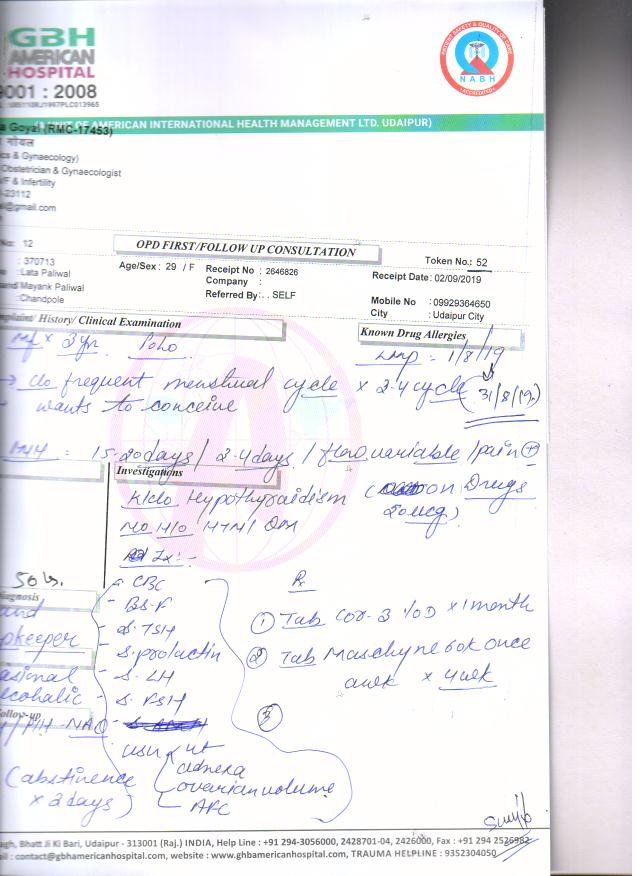 GBH
AMERICAN
HOSPITAL
9001 : 2008
PATIENT SAFETY & QUALITY OF CARE
NABH
ACCREDITED
OF AMERICAN INTERNATIONAL HEALTH MANAGEMENT LTD. UDAIPUR)
a Goyal (RMC-17453)
गोयल
cs & Gynaecology)
Obstetrician & Gynaecologist
F & Infertility
-23112
@gmail.com
No: 12
OPD FIRST/FOLLOW UP CONSULTATION
Token No.: 52
: 370713
Age/Sex : 29 / F
Receipt No : 2646826
Receipt Date : 02/09/2019
: Lata Paliwal
Company :
and Mayank Paliwal
Referred By: . . SELF
Mobile No : 09929364650
: Chandpole
City : Udaipur City
mplaint/ History/ Clinical Examination
Known Drug Allergies
Mf x 3 yr. PoLo
LMP = 1/8/19
→ c/o frequent menstrual cycle x 2-4 cycle (31/8/19)
- wants to conceive
M/H : 15-20 days / 2-4 days / flow variable / pain +
Investigations
K/c/o Hypothyroidism (on Drugs
No H/O HTN/ DM
20 mcg)
Ix :-
- CBC
Rx
diagnosis
- BS-F
① Tab COR-3 1/OD x 1 month
- S.TSH
pkeeper
- S.prolactin
② Tab Maschyne 60k once
a wek x 4 wek
- S. LH
- S. FSH
ollow-up
③
USN
ut
adnexa
ovarian volume
AFC
(abstinence
x 2 days)
agh, Bhatt Ji Ki Bari, Udaipur - 313001 (Raj.) INDIA, Help Line : +91 294-3056000, 2428701-04, 2426000, Fax : +91 294 2526982
ail : contact@gbhamericanhospital.com, website : www.gbhamericanhospital.com, TRAUMA HELPLINE : 9352304050